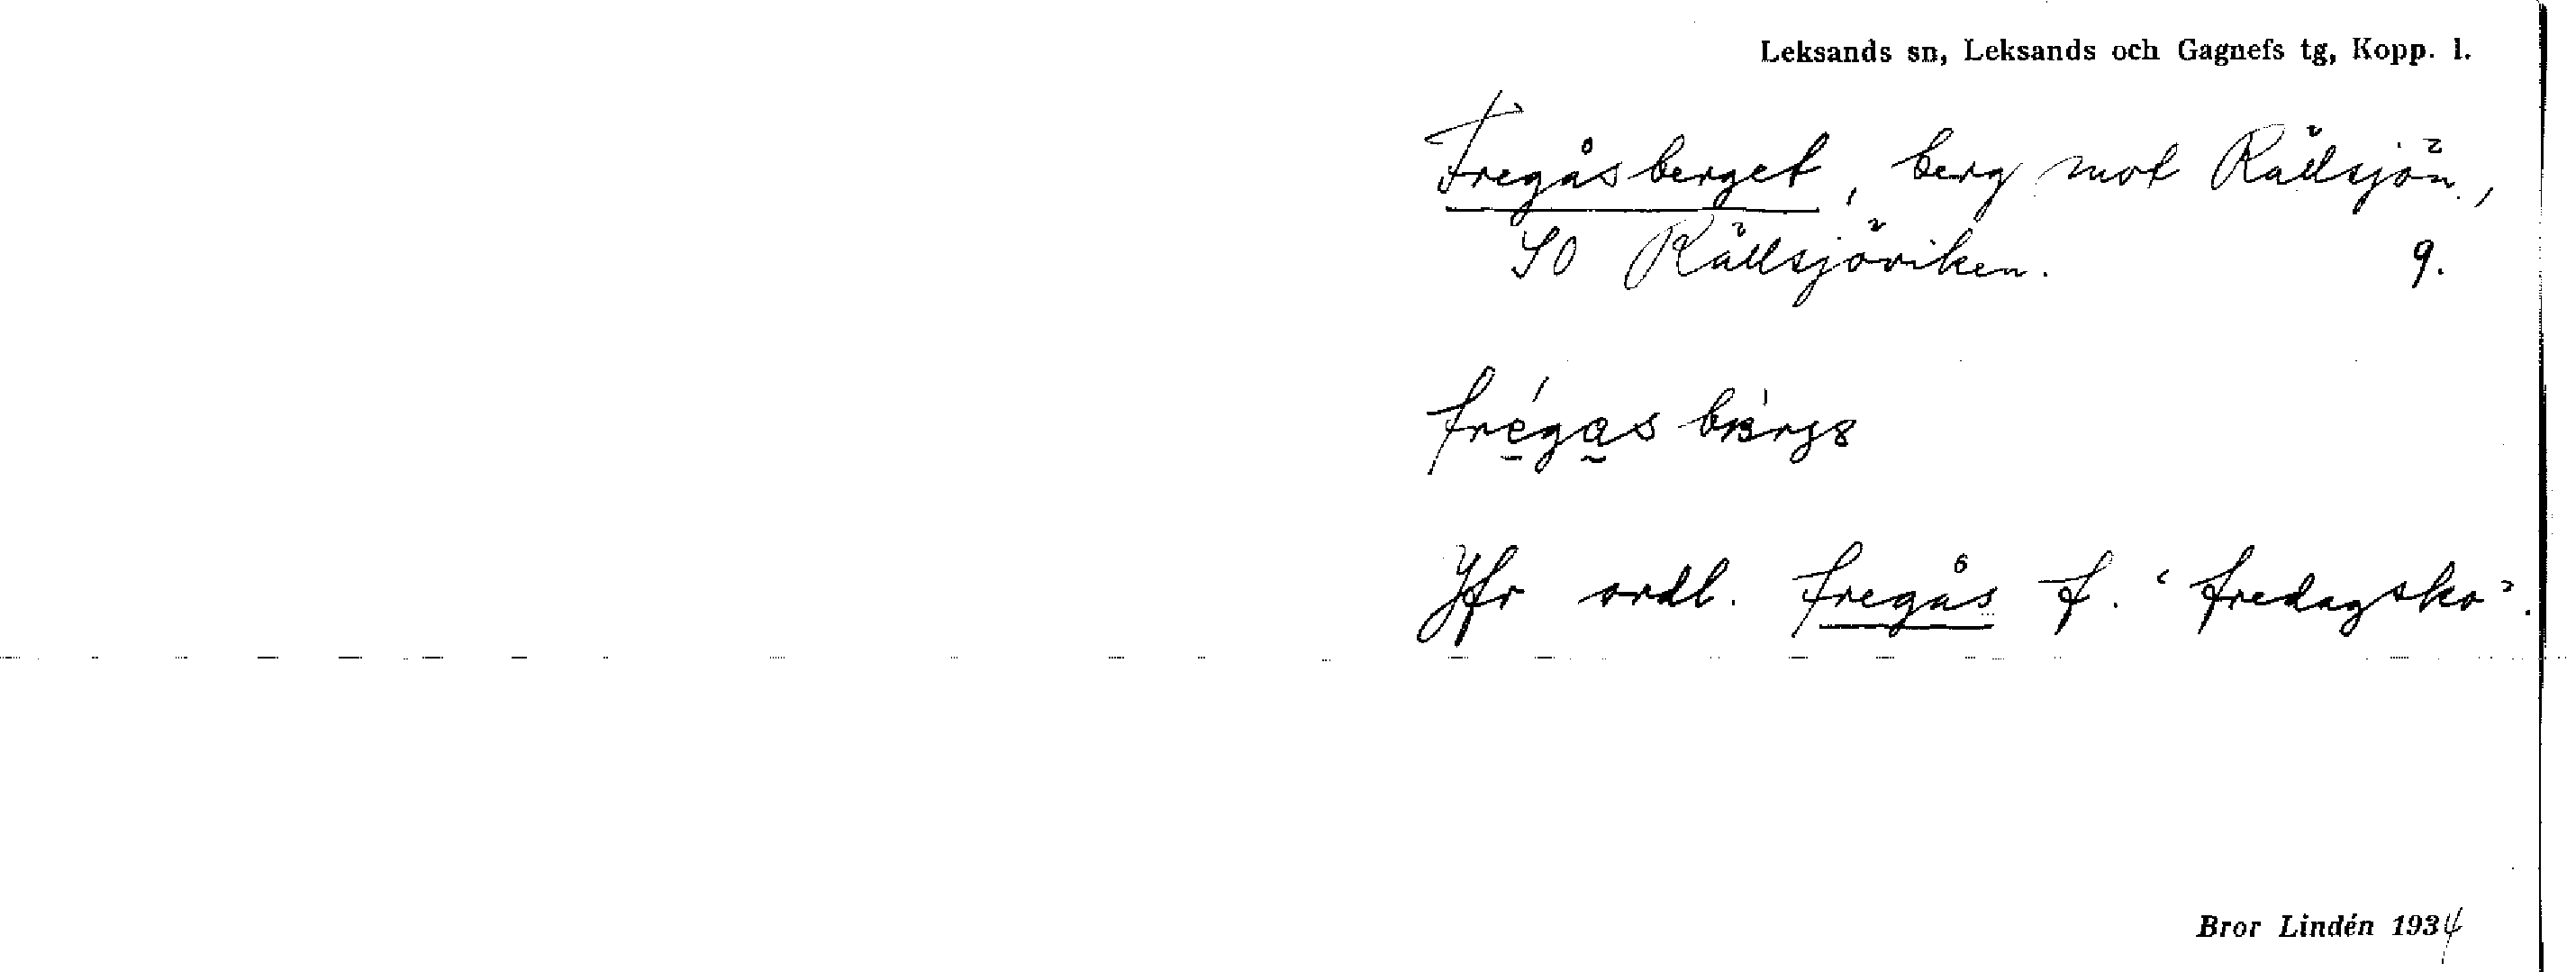 Leksands sn, Leksands och Gagnefs tg, Kopp. l.
Fregåsberget, berg mot Rällsjön,
SO Rällsjöviken. 9.
Jfr ordl. fregås f. "fredagsko".
Bror Lindén 1934